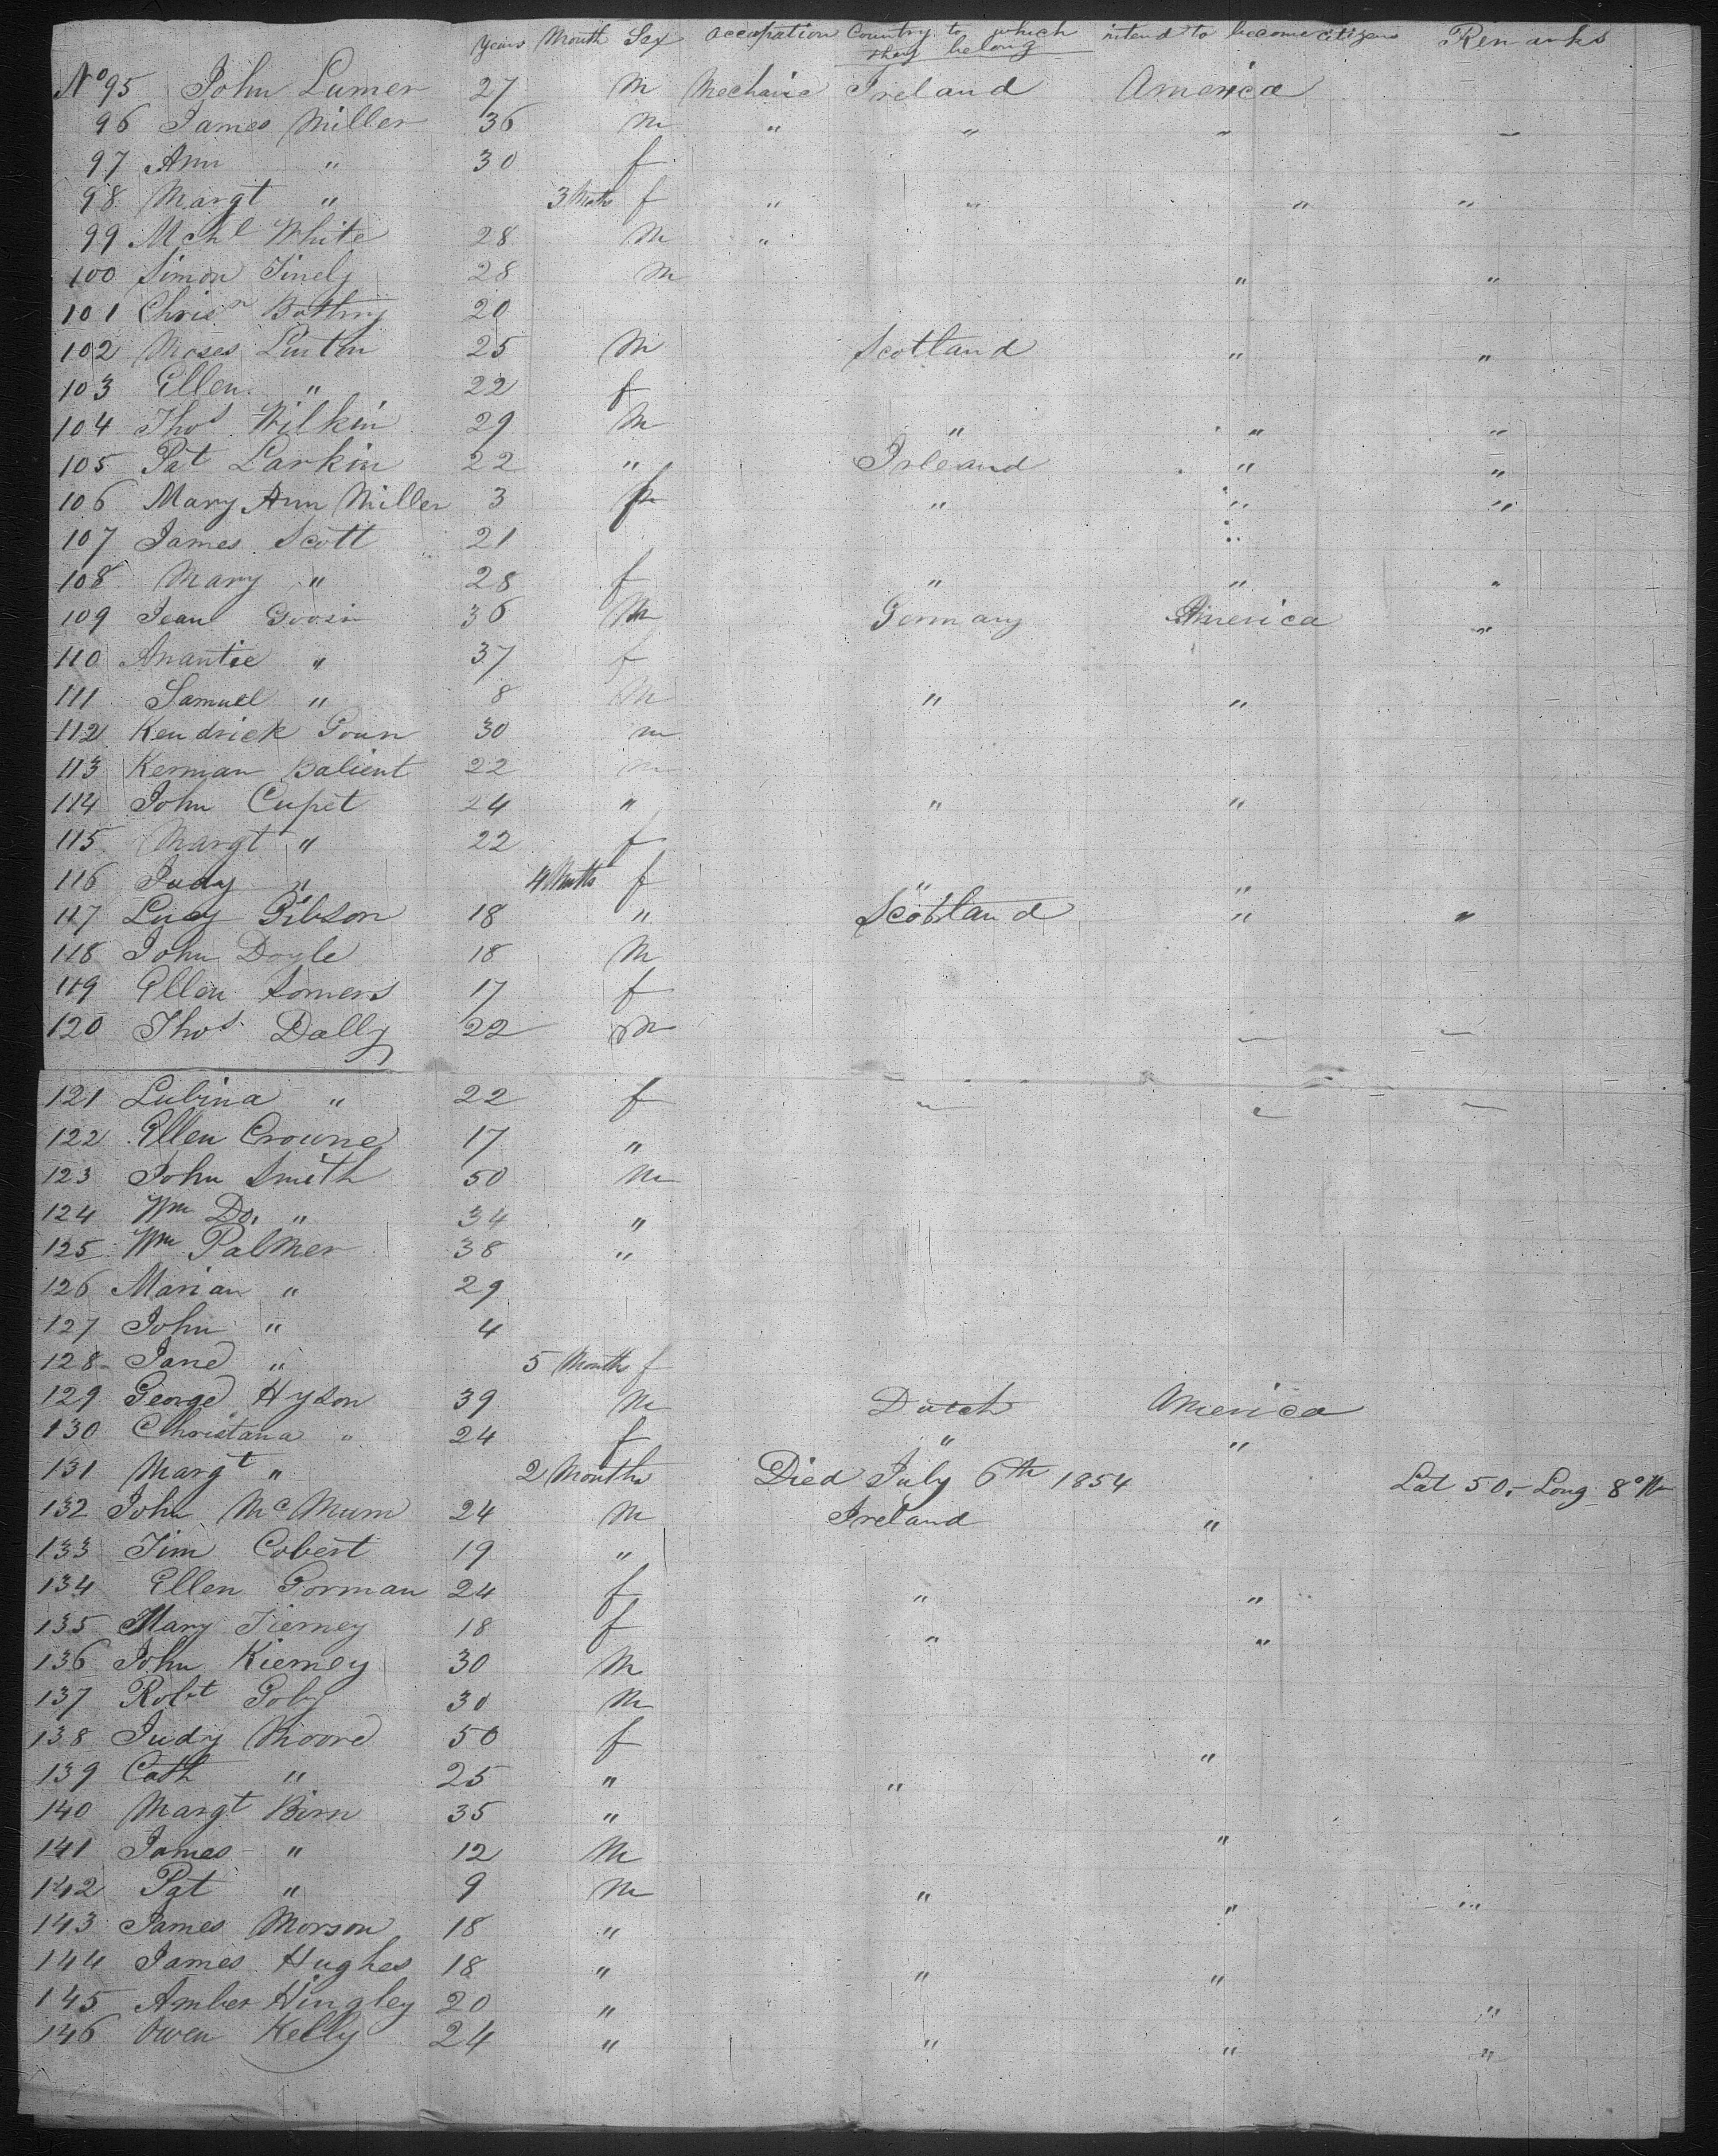 Years Month Sex Occupation Country to which they belong intend to become citizens Remarks
No 95 John Lumer 27 M Mechanic Ireland America
96 James Miller 36 M " " " "
97 Ann " 30 f
98 Margt " 3 Moths f " " " "
99 Mchl White 28 M "
100 Simon 28 M " "
101 Chrisn 20
102 Moses Linton 25 M Scotland " "
103 Ellen " 22 f
104 Thos Wilkin 29 M " " "
105 Pat Larkin 22 " Irleand " "
106 Mary Ann Miller 3 f " " "
107 James Scott 21 "
108 Mary " 28 f " " "
109 Jean Goosin 36 M Germany America "
110 Anantie " 37 f
111 Samuel " 8 M " "
112 Kendrick Goun 30 m
113 Kerman Balient 22 m
114 John Cupet 24 " " "
115 Margt " 22 f
116 Judy " 4 Month f " "
117 Lucy Gibson 18 " Scotland " "
118 John Doyle 18 M
119 Ellen Somers 17 f
120 Thos Dally 22 M
121 Lubina " 22 f
122 Ellen Crowne 17 "
123 John Smith 50 M
124 Wm Do. " 34 "
125 Wm Palmer 38 "
126 Marian " 29
127 John " 4
128 Jane " 5 Months f
129 George Hyson 39 M Dutch America
130 Christana " 24 f " "
131 Margt " 2 Months Died July 6th 1854 Lat 50.- Long 8° W
132 John McMum 24 M Ireland "
133 Jim Cobert 19 "
134 Ellen Gorman 24 f " "
135 Mary Tierney 18 f " "
136 John Kierney 30 M
137 Robt Goby 30 M
138 Judy Moore 50 f "
139 Cath " 25 " "
140 Margt Birn 35 "
141 James " 12 M "
142 Pat " 9 M " " "
143 James Morson 18 "
144 James Hughes 18 " " "
145 Amber Hingley 20 " "
146 Owen Kelly 24 " " " "